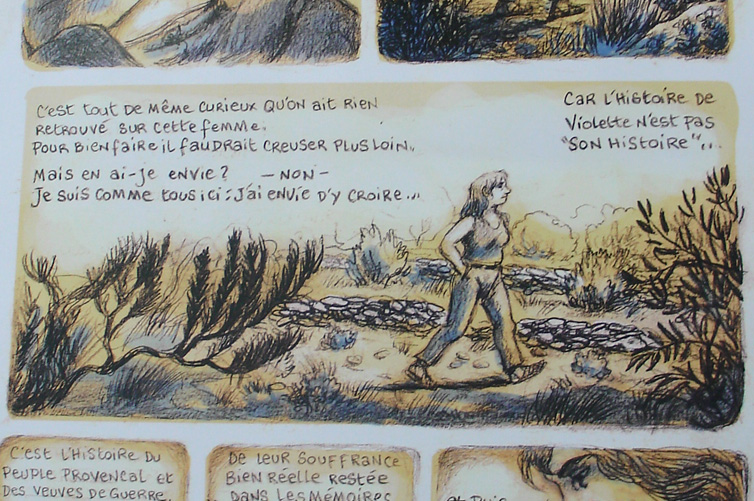 C'est tout de même curieux qu'on ait rien
retrouvé sur cette femme.
Pour bien faire il faudrait creuser plus loin..
Mais en ai-je envie ? – NON –
Je suis comme tous ici : J'ai envie d'y croire...
Car l'histoire de
Violette n'est pas
"SON HISTOIRE"...
C'est l'histoire du
peuple provencal et
des veuves de guerre,
De leur souffrance
bien réelle restée
dans les mémoires
et puis